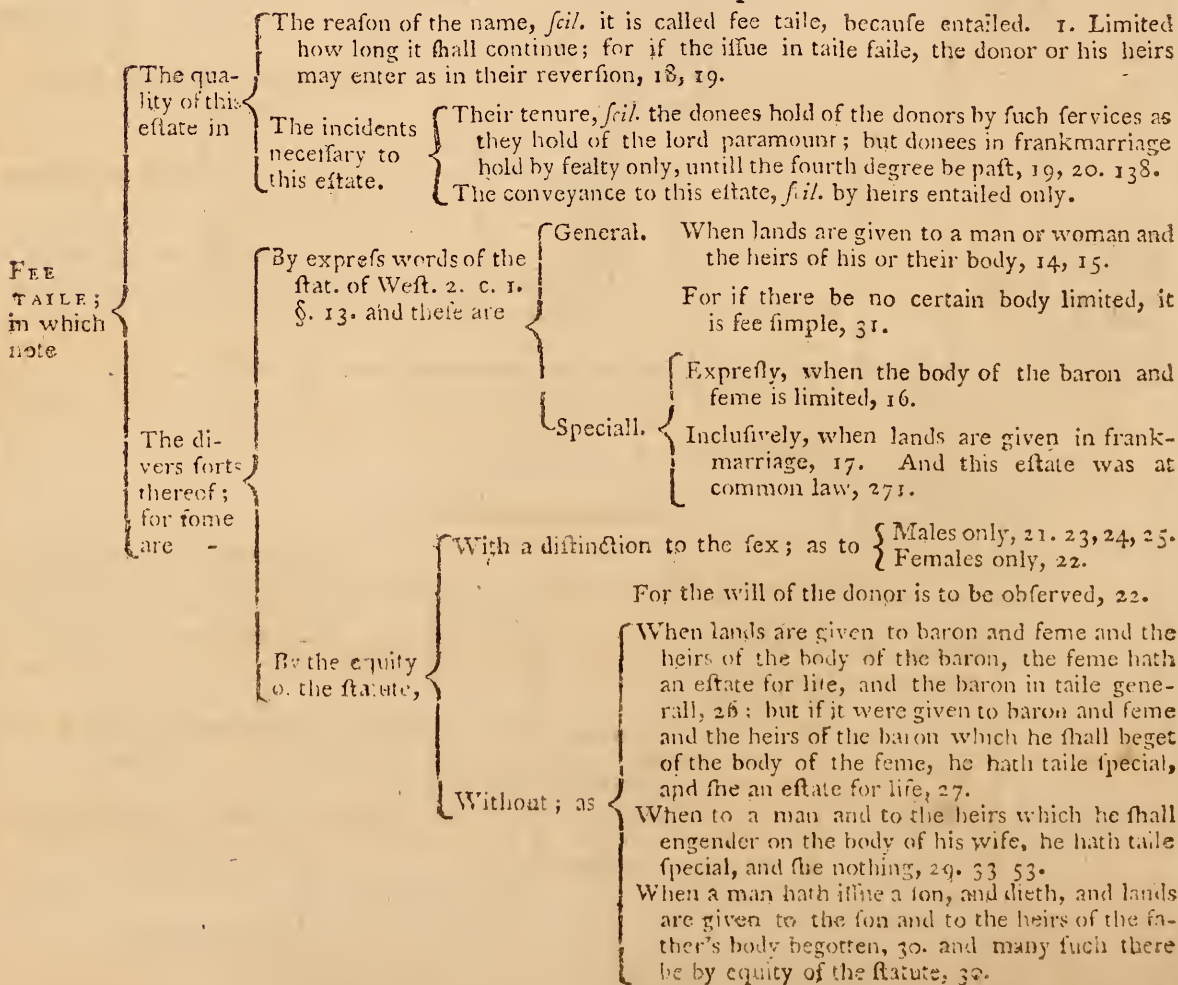 The reaſon of the name, ſcil. it is called fee taile, becauſe entailed. 1. Limited
how long it ſhall continue; for if the iſſue in taile faile, the donor or his heirs
may enter as in their reverſion, 18, 19.
The qua-
lity of this
eſtate in
The incidents
neceſſary to
this eſtate.
Their tenure, ſcil. the donees hold of the donors by ſuch ſervices as
they hold of the lord paramount; but donees in frankmarriage
hold by fealty only, untill the fourth degree be paſt, 19, 20. 138.
The conveyance to this eſtate, ſcil. by heirs entailed only.
FEE
TAILE;
in which
note
The di-
vers ſorts
thereof;
for ſome
are -
By expreſs words of the
ſtat. of Weſt. 2. c. 1.
§. 13. and theſe are
General. When lands are given to a man or woman and
the heirs of his or their body, 14, 15.
For if there be no certain body limited, it
is fee ſimple, 31.
Speciall.
Expreſly, when the body of the baron and
feme is limited, 16.
Incluſively, when lands are given in frank-
marriage, 17. And this eſtate was at
common law, 271.
By the equity
o. the ſtatute,
With a diſtinction to the ſex; as to
Males only, 21. 23, 24, 25.
Females only, 22.
For the will of the donor is to be obſerved, 22.
Without; as
When lands are given to baron and feme and the
heirs of the body of the baron, the feme hath
an eſtate for life, and the baron in taile gene-
rall, 26: but if it were given to baron and feme
and the heirs of the baron which he ſhall beget
of the body of the feme, he hath taile ſpecial,
and ſhe an eſtate for life, 27.
When to a man and to the heirs which he ſhall
engender on the body of his wife, he hath taile
ſpecial, and ſhe nothing, 29. 33 53.
When a man hath iſſue a ſon, and dieth, and lands
are given to the ſon and to the heirs of the fa-
ther's body begotten, 30. and many ſuch there
be by equity of the ſtatute, 30.